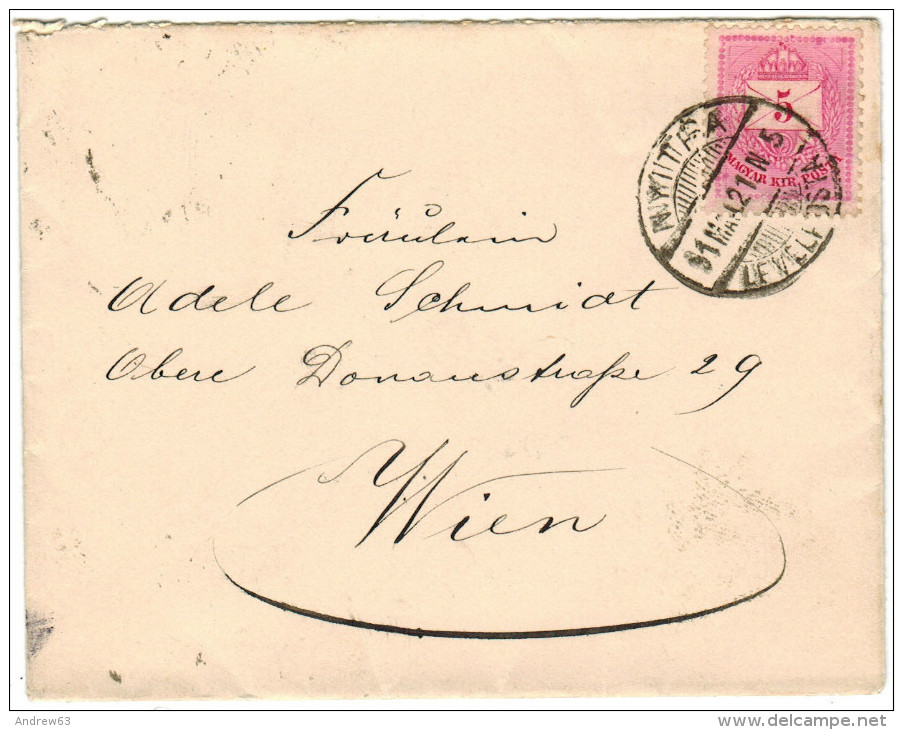 5
MAGYAR KIR. POSTA
NYITRA
91 MAJ 21 N 5
Fräulein
Adele Schmidt
Obere Donaustraße 29
Wien
Andrew63
www.delcampe.net